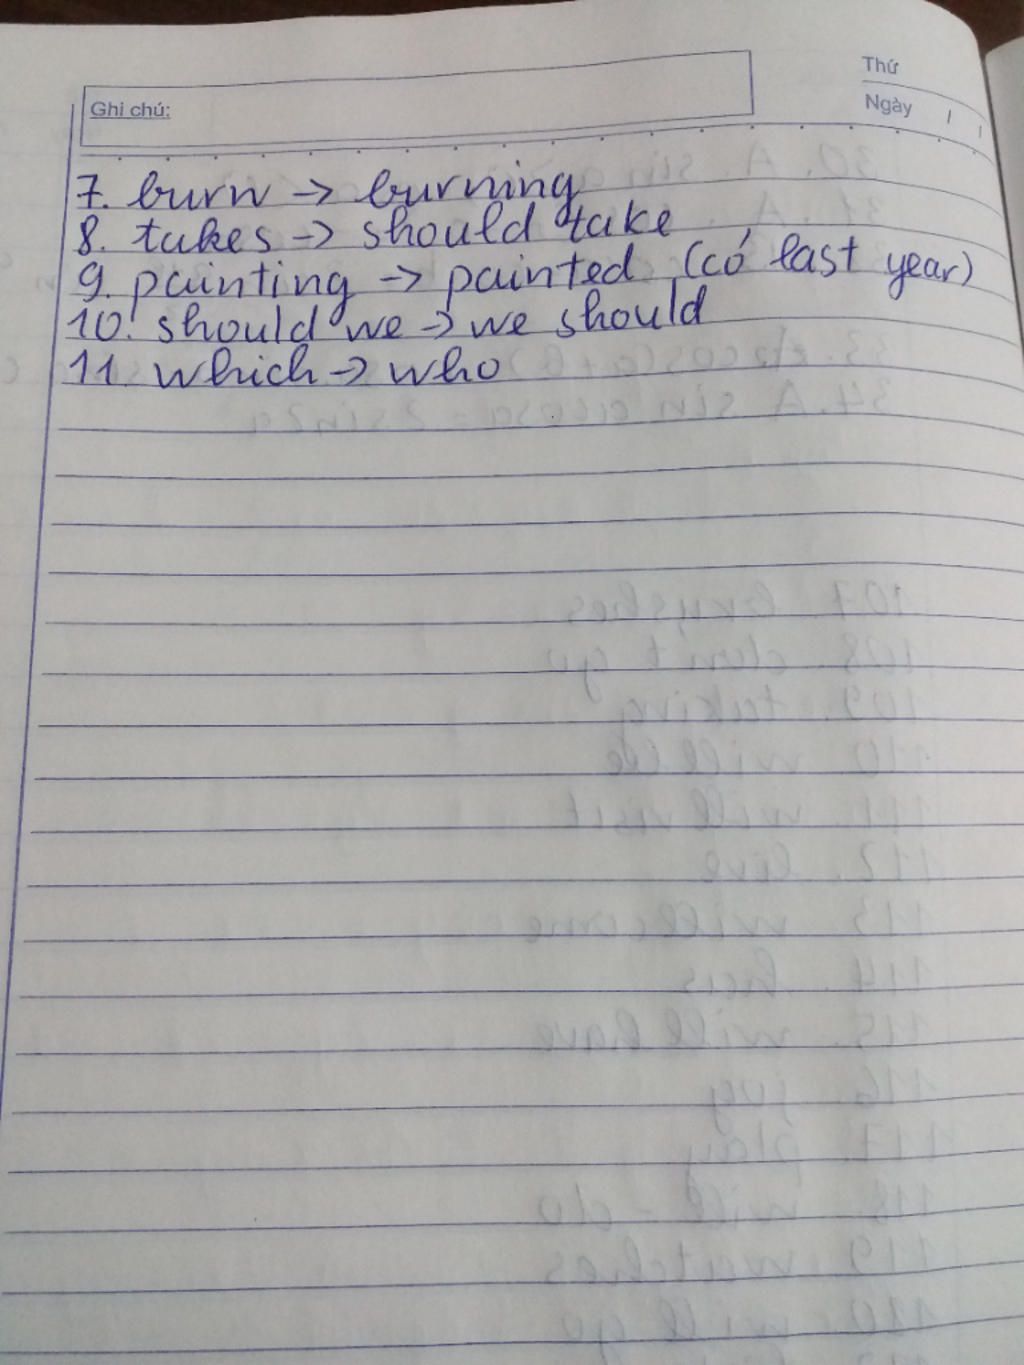 Ghi chú:
Thứ
Ngày
7. burn -> burning
8. takes -> should take
9. painting -> painted (có last year)
10. should we -> we should
11. which -> who